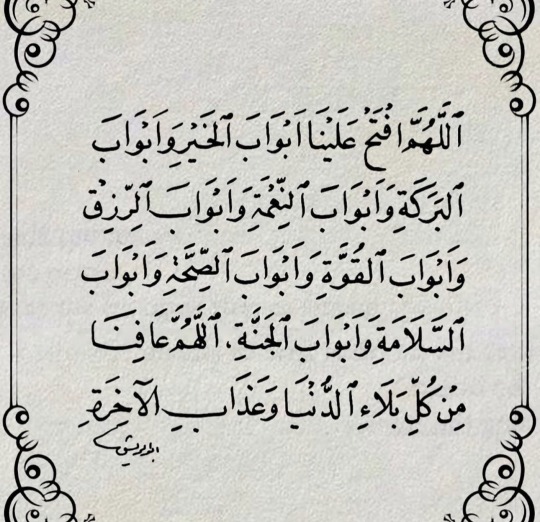 اَللّٰهُمَّ افْتَحْ عَلَيْنَا اَبْوَابَ الْخَيْرِ وَاَبْوَابَ
الْبَرَكَةِ وَاَبْوَابَ النِّعْمَةِ وَاَبْوَابَ الرِّزْقِ
وَاَبْوَابَ الْقُوَّةِ وَاَبْوَابَ الصِّحَّةِ وَاَبْوَابَ
السَّلَامَةِ وَاَبْوَابَ الْجَنَّةِ، اَللّٰهُمَّ عَافِنَا
مِنْ كُلِّ بَلَاءِ الدُّنْيَا وَعَذَابِ الْآخِرَةِ